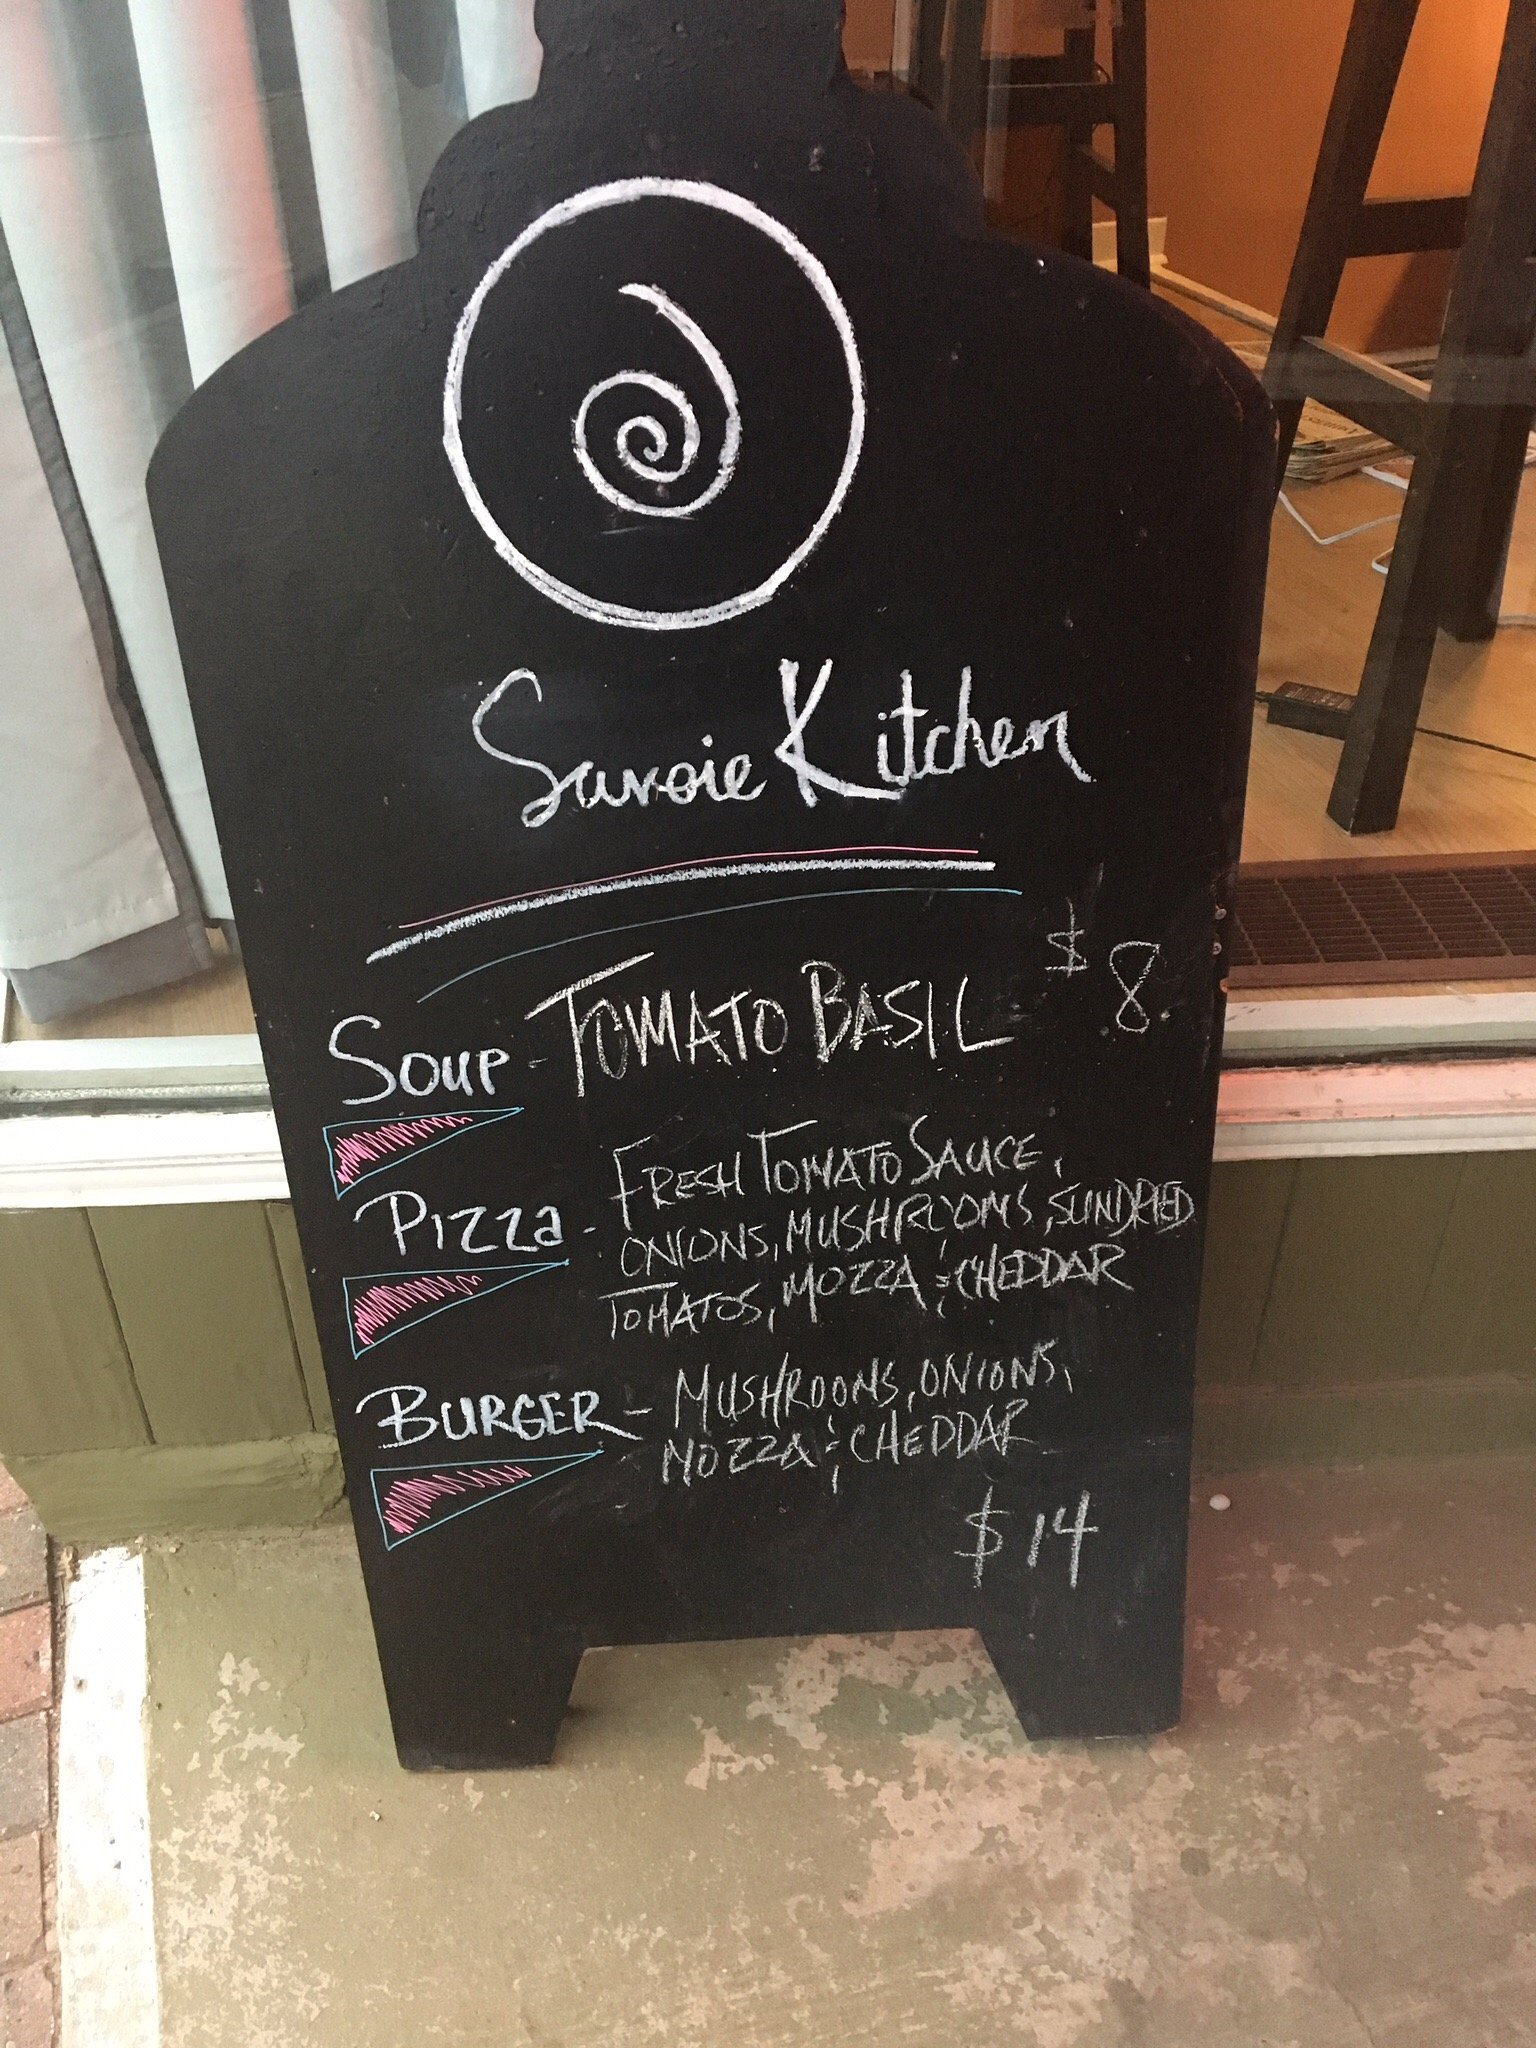 Savoie Kitchen
Soup - TOMATO BASIL $8
Pizza - FRESH TOMATO SAUCE,
ONIONS, MUSHROOMS, SUNDRIED
TOMATOS, MOZZA & CHEDDAR
BURGER - MUSHROOMS, ONIONS,
MOZZA & CHEDDAR
$14